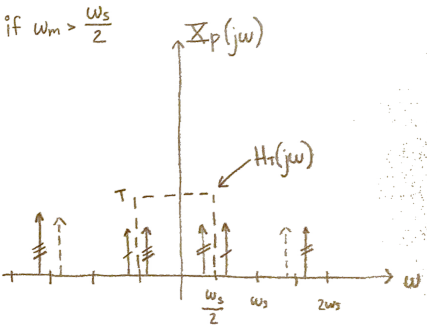 if ωm > ωs/2
Xp(jω)
HT(jω)
T
ωs/2
ωs
2ωs
ω